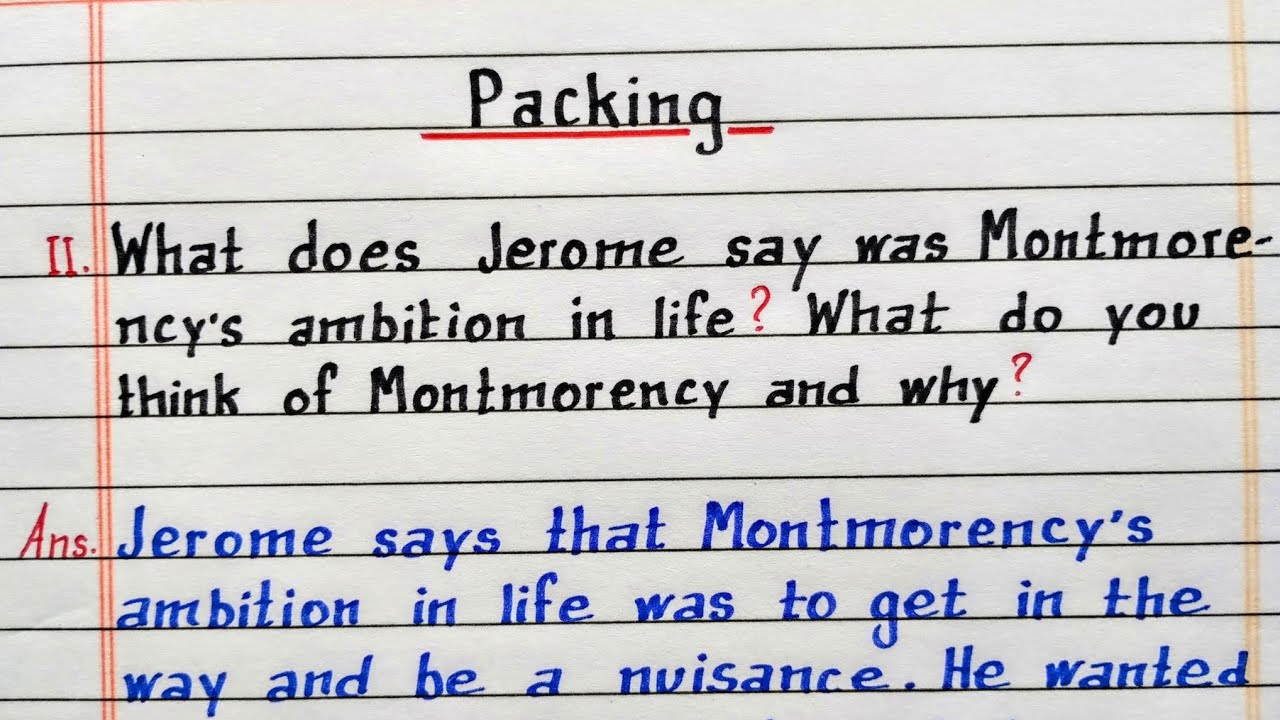 Packing
II. What does Jerome say was Montmore-
ncy's ambition in life? What do you
think of Montmorency and why?
Ans. Jerome says that Montmorency's
ambition in life was to get in the
way and be a nuisance. He wanted